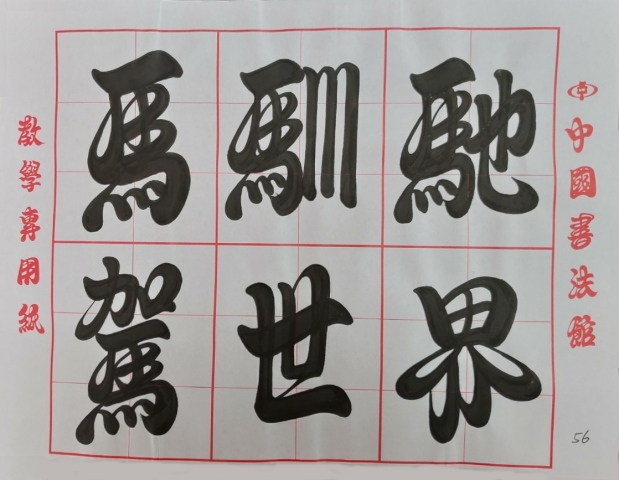 馬馴馳
駕世界
中國書法館
教學專用紙
56